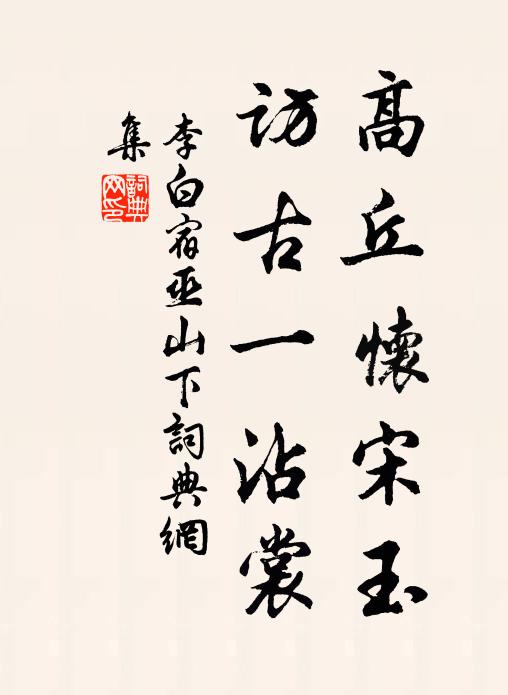 高丘懷宋玉
訪古一沾裳
李白宿巫山下詞典網
集
詞典網印